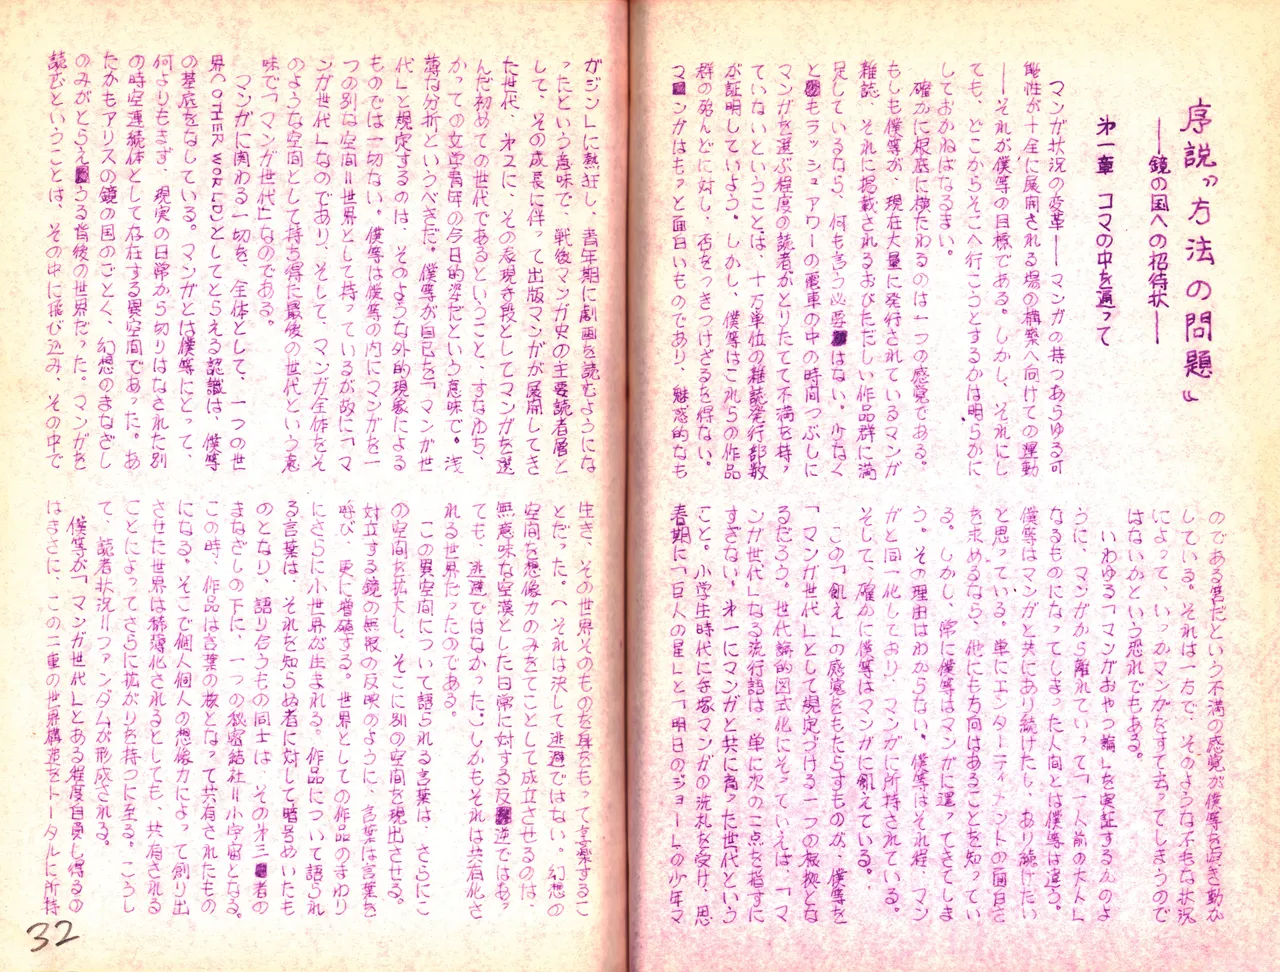 序説〝方法の問題〟
――鏡の国への招待状――
才一章 コマの中を通って
マンガ状況の変革――マンガの持つあらゆる可
能性が十全に展開される場の構築へ向けての運動
――それが僕等の目標である。しかし、それにし
ても、どこからそこへ行こうとするかは明らかに
しておかねばなるまい。
確かに根底に横たわるのは一つの感覚である。
もしも僕等が、現在大量に発行されているマンガ
雑誌、それに掲載されるおびただしい作品群に満
足しているなら、何も言う必要はない。少なく
ともラッシュアワーの電車の中の時間つぶしに
マンガを選ぶ程度の読者がとりたてて不満を持っ
ていないということは、十万単位の雑誌発行部数
が証明していよう。しかし、僕等はこれらの作品
群の殆んどに対し、否をつきつけざるを得ない。
マンガはもっと面白いものであり、魅惑的なも
のである筈だという不満の感覚が僕等を突き動か
している。それは一方で、そのような不毛な状況
によって、いつかマンガをすて去ってしまうので
はないかという恐れでもある。
いわゆる「マンガおやつ論」を実証するんのよ
うに、マンガから離れていって「一人前の大人」
なるものになってしまった人間とは僕等は違う。
僕等はマンガと共にあり続けたし、あり続けたい
と思っている。単にエンターティナメントの面白さ
を求めるなら、他にも方向はあることを知ってい
る。しかし、常に僕等はマンガに還ってきてしま
う。その理由はわからない。僕等はそれ程、マン
ガと同一化しており、マンガに所持されている。
そして、確かに僕等はマンガに飢えている。
この「飢え」の感覚をもたらすものが、僕等を
「マンガ世代」として規定づける一つの根拠とな
るだろう。世代論的図式化にそっていえば、「マ
ンガ世代」なる流行語は、単に次の二点を指すに
すぎない。才一にマンガと共に育った世代という
こと。小学生時代に手塚マンガの洗礼を受け、思
春期に「巨人の星」と「明日のジョー」の少年マ
ガジン」に熱狂し、青年期に劇画を読むようにな
ったという意味で、戦後マンガ史の主要読者層と
して、その成長に伴って出版マンガが展開してき
た世代、才2に、その表現手段としてマンガを選
んだ初めての世代であるということ、すなわち、
かっての文学青年の今日的姿だという意味で。浅
薄な分析というべきだ。僕等が自己を「マンガ世
代」と規定するのは、そのような外的現象による
ものでは一切ない。僕等は僕等の内にマンガを一
つの別な空間=世界として持っているが故に「マ
ンガ世代」なのであり、そして、マンガ全体をそ
のような空間として持ち得た最後の世代という意
味で「マンガ世代」なのである。
マンガに関わる一切を、全体として、一つの世
界(OTHER WORLD)としてとらえる認識は、僕等
の基底をなしている。マンガとは僕等にとって、
何よりもまず、現実の日常から切りはなされた別
の時空連続体として存在する異空間であった。あ
たかもアリスの鏡の国のごとく、幻想のまなざし
のみがとらえうる背後の世界だった。マンガを
読むということは、その中に飛び込み、その中で
生き、その世界そのものを身をもって享楽するこ
とだった。(それは決して逃避ではない。幻想の
空間を想像力のみをてことして成立させるのは、
無意味な空漠とした日常に対する反逆ではあっ
ても、逃避ではなかった。)しかもそれは共有化さ
れる世界だったのである。
この異空間について語られる言葉は、さらにこ
の空間を拡大し、そこに別の空間を現出させる。
対立する鏡の無限の反映のように、言葉は言葉を
呼び、更に増殖する。世界としての作品のまわり
にさらに小世界が生まれる。作品について語られ
る言葉は、それを知らぬ者に対して暗号めいたも
のとなり、語り合うもの同士は、その才三者の
まなざしの下に、一つの秘密結社=小宇宙となる。
この時、作品は言葉の核となって共有されたもの
になる。そこで個人個人の想像力によって創り出
させた世界は稀薄化されるとしても、共有される
ことによってさらに拡がりを持つに至る。こうし
て、読者状況=ファンダムが形成される。
僕等が「マンガ世代」とある程度自負し得るの
はまさに、この二重の世界構造をトータルに所持
32